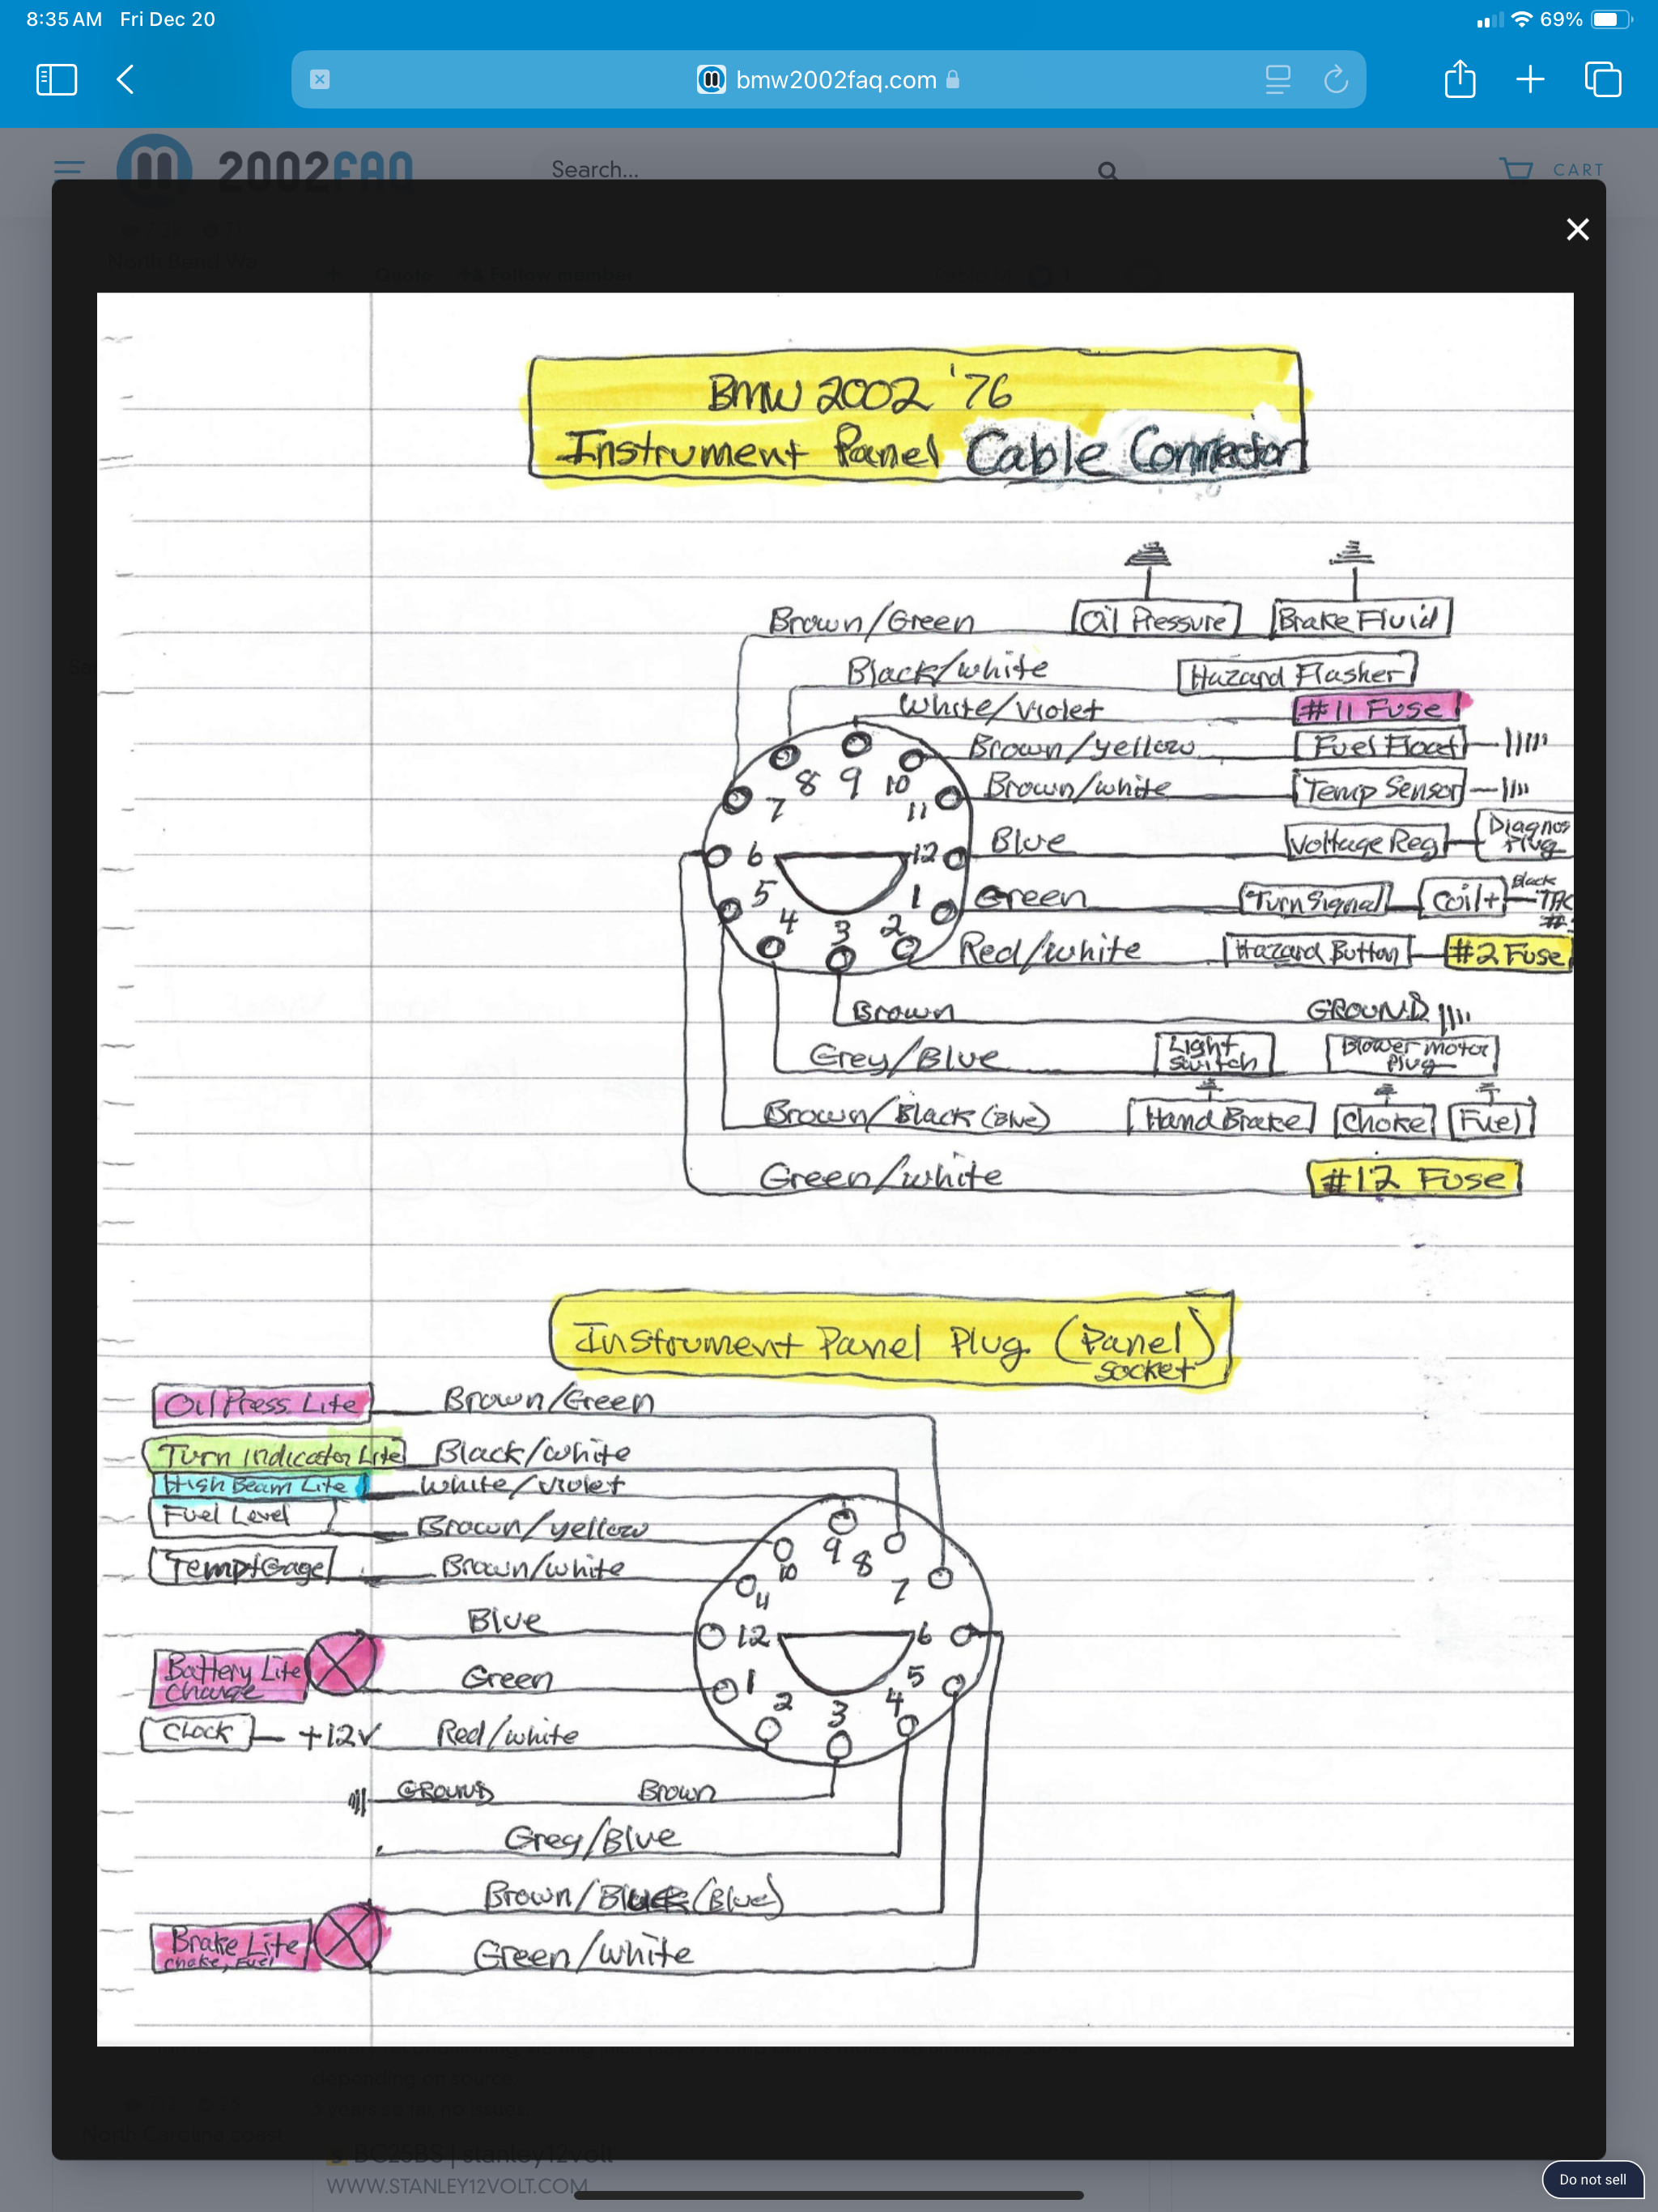 8:35 AM Fri Dec 20
69%
bmw2002faq.com
2002FAQ
Search...
CART
North Bend Wa
BMW 2002 '76
Instrument Panel Cable Connector
Brown/Green
Oil Pressure
Brake Fluid
Black/white
Hazard Flasher
White/Violet
#11 Fuse
Brown/yellow
Fuel Float
Brown/white
Temp Sensor
Blue
Voltage Reg
Diagnos
Plug
Green
Turn Signal
Coil+
Black
Red/white
Hazard Button
#2 Fuse
Brown
GROUND
Grey/Blue
Light
Switch
Blower Motor
Plug
Brown/Black (Blue)
Hand Brake
Choke
Fuel
Green/white
#12 Fuse
8 9 10
7 11
6 12
5 1
4 3 2
Instrument Panel Plug (Panel)
Socket
Oil Press. Lite
Brown/Green
Turn Indicator Lite
Black/white
High Beam Lite
White/violet
Fuel Level
Brown/yellow
Temp Gage
Brown/white
Blue
Battery Lite
Charge
Green
Clock
+12V
Red/white
GROUND
Brown
Grey/Blue
Brown/Black (Blue)
Brake Lite
Choke, Fuel
Green/white
10 9 8
11 7
12 6
1 5
2 3 4
BC25BS | stanley12volt
WWW.STANLEY12VOLT.COM
Do not sell